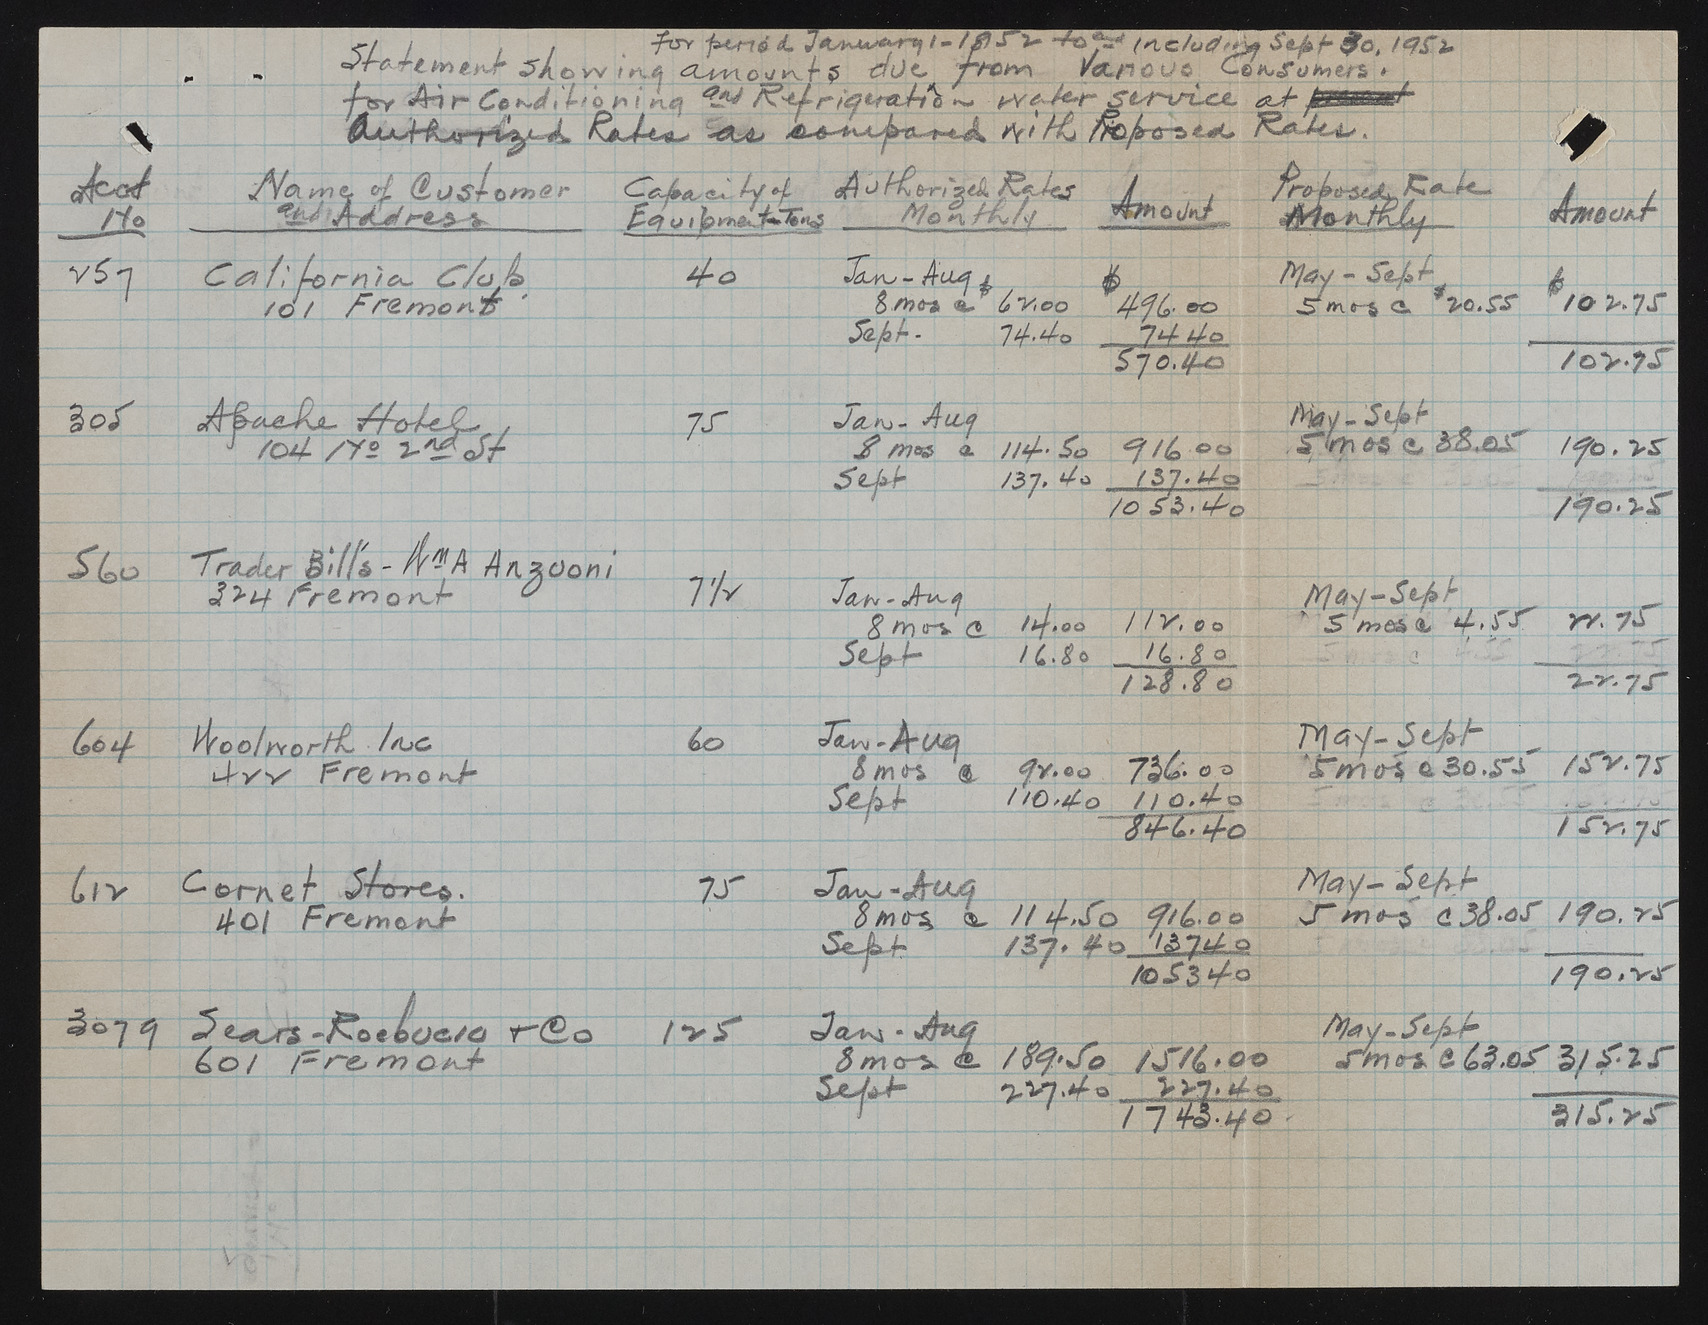 For period January 1-1952 to and including Sept 30, 1952
Statement showing amounts due from Various Consumers.
for Air Conditioning and Refrigeration water service at
Authorized Rates as compared with Proposed Rates.
Acct No Name of Customer and Address Capacity of Equipment-Tons Authorized Rates Monthly Amount Proposed Rate Monthly Amount
257 California Club 40 Jan-Aug $ $ May-Sept $
101 Fremont 8 mos @ 62.00 496.00 5 mos @ $20.55 102.75
Sept. 74.40 74 40
570.40 102.75
305 Apache Hotel 75 Jan-Aug May-Sept
104 No 2nd St 8 mos @ 114.50 916.00 5 mos @ 38.05 190.25
Sept 137.40 137.40
1053.40 190.25
560 Trader Bill's - Wm A Anzuoni
324 Fremont 7 1/2 Jan-Aug May-Sept
8 mos @ 14.00 112.00 5 mos @ 4.55 22.75
Sept 16.80 16.80
128.80 22.75
604 Woolworth Inc 60 Jan-Aug May-Sept
422 Fremont 8 mos @ 92.00 736.00 5 mos @ 30.55 152.75
Sept 110.40 110.40
846.40 152.75
612 Cornet Stores. 75 Jan-Aug May-Sept
401 Fremont 8 mos @ 114.50 916.00 5 mos @ 38.05 190.25
Sept 137.40 13740
105340 190.25
3079 Sears-Roebuck + Co 125 Jan-Aug May-Sept
601 Fremont 8 mos @ 189.50 1516.00 5 mos @ 63.05 315.25
Sept 227.40 227.40
1743.40 315.25